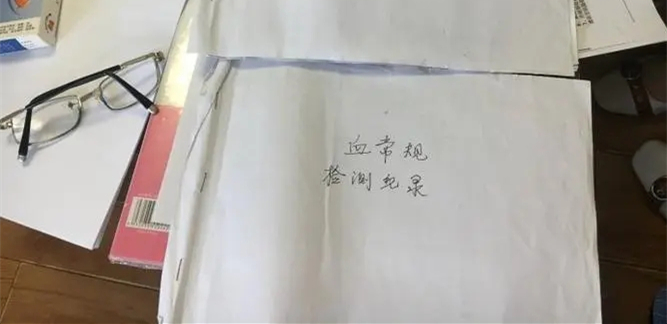 血常规
检测纪录